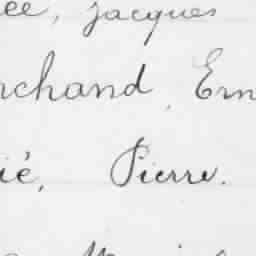 ee, Jacques
rchand, Ern
ié, Pierre.